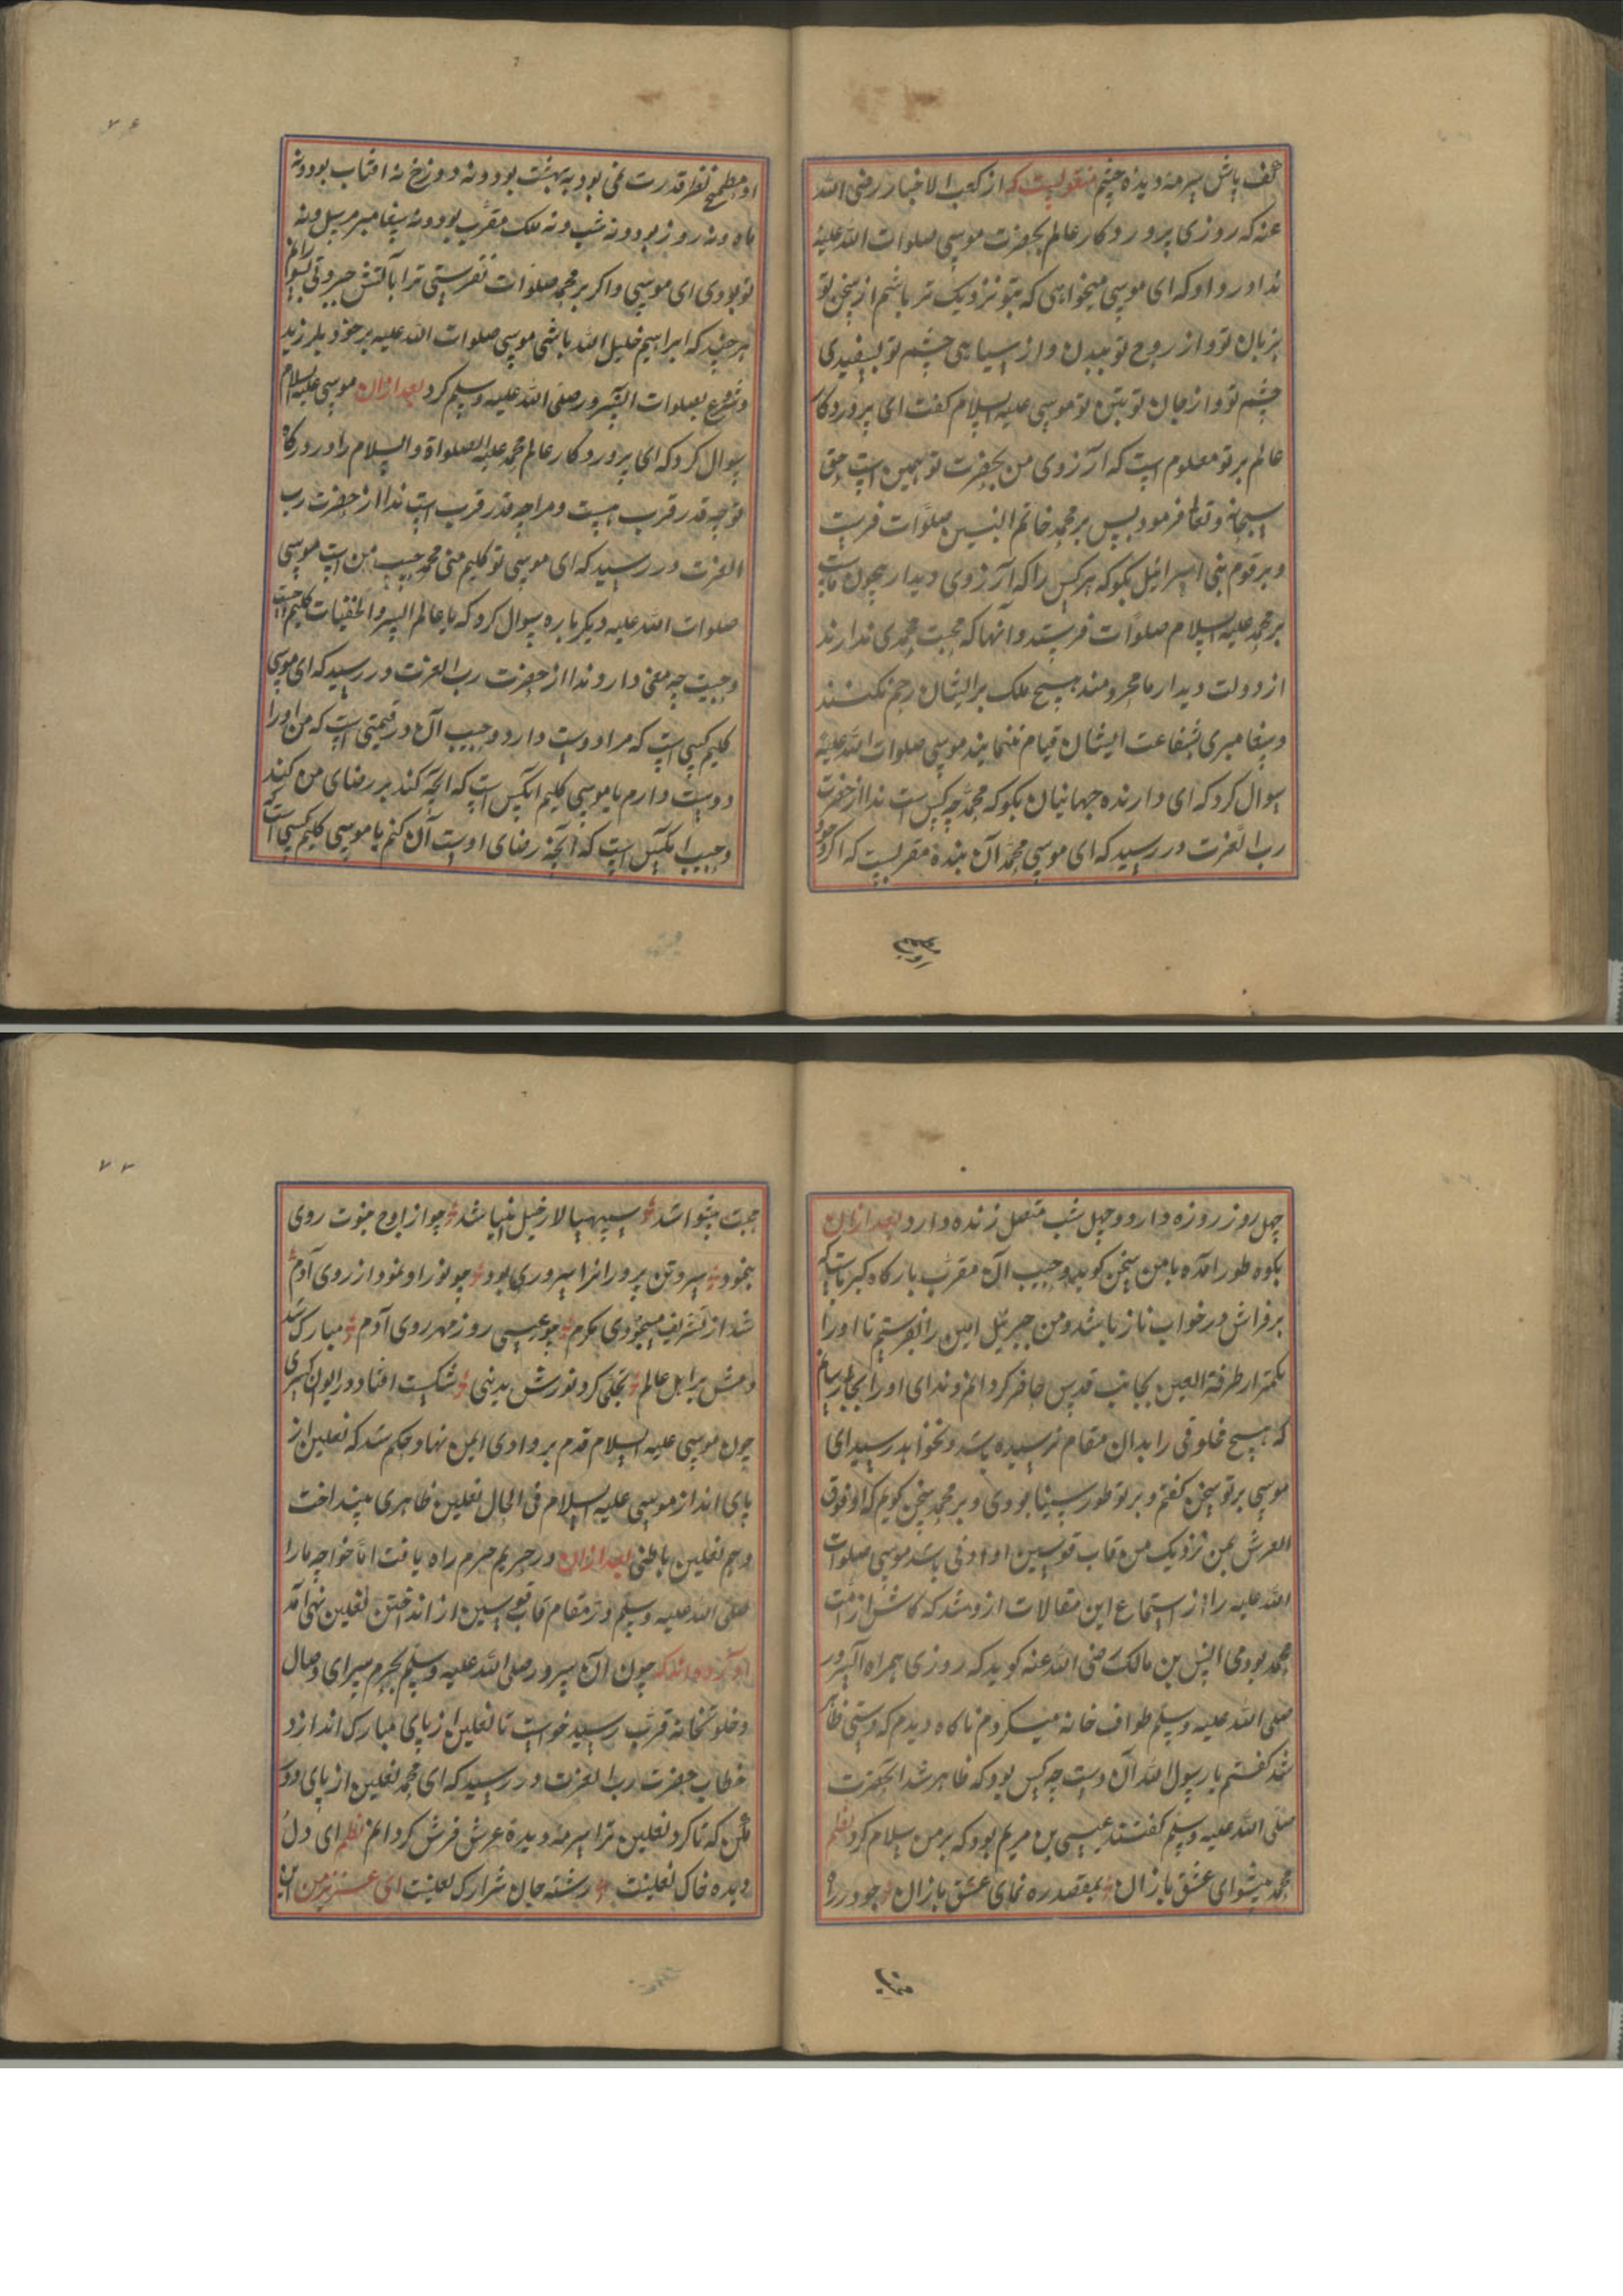 کف پایش سرمه دیده چشم منقولیست که از کعب الاخبار رضی الله
عنه که روزی پروردکار عالم بحضرت موسی صلوات الله علیه
ندا در داد که ای موسی میخواهی که بتو نزدیک تر باشم از سخن تو
بزبان تو و از روح تو ببدن و از سیاهی چشم تو بسفیدی
چشم تو و از جان تو بتن تو موسی علیه السلام کفت ای پروردکار
عالم بر تو معلوم است که آرزوی من بحضرت تو همین است حق
سبحانه و تعالی فرمود پس بر محمد خاتم النبیین صلوات فرست
و بر قوم بنی اسرائیل بکو که هر کس را که آرزوی دیدار بیچون ماست
بر محمد علیه السلام صلوات فرستد و آنها که محبت محمدی ندارند
از دولت دیدار ما محرومند هیچ ملک بر ایشان رحم نکنند
و پیغامبری بشفاعت ایشان قیام ننمایند موسی صلوات الله علیه
سوال کرد که ای دارنده جهانیان بکو که محمد چه کس است ندا از حضرت
رب العزت در رسید که ای موسی محمد آن بنده مقربیست که اکر وجود
او مطمح نظر قدرت نمی بود نه بهشت بود و نه دوزخ نه افتاب بود و نه
ماه و نه روز بود و نه شب و نه ملک مقرب بود و نه پیغامبر مرسل و نه
تو بودی ای موسی و اکر بر محمد صلوات نفرستی ترا بآتش جبروتی بسوزانم
هر چند که ابراهیم خلیل الله باشی موسی صلوات الله علیه بر خود بلرزید
و شروع بصلوات آنسرور صلی الله علیه وسلم کرد بعد ازان موسی علیه السلام
سوال کرد که ای پروردکار عالم محمد علیه الصلواة والسلام را در درکاه
تو چه قدر قرب هست و مرا چه قدر قرب است ندا از حضرت رب
العزت در رسید که ای موسی تو کلیم منی محمد حبیب من است موسی
صلوات الله علیه دیکر باره سوال کرد که یا عالم السر والخفیات کلیم چیست
و حبیب چه معنی دارد ندا از حضرت رب العزت در رسید که ای موسی
کلیم کسی است که مرا دوست دارد و حبیب آن در قیمتی است که من او را
دوست دارم یا موسی کلیم آنکس است که آنچه کند بر رضای من کند
و حبیب آنکس است که آنچه رضای اوست آن کنم یا موسی کلیم کسی است که
چهل روز روزه دارد و چهل شب متصل زنده دارد بعد ازان
بکوه طور آمده با من سخن کوید و حبیب آن مقرب بارکاه کبریاست که
بر فراش در خواب ناز باشد و من جبرئیل امین را بفرستم تا او را
بکمتر از طرفة العین بجانب قدس حاضر کردانم و ندای او را بجائی رسانم
که هیچ مخلوقی را بدان مقام نرسیده باشد و نخواهد رسید ای
موسی بر تو سخن کفتم و بر تو طور سینا بودی و بر محمد سخن کویم که او فوق
العرش بمن نزدیک من قاب قوسین او ادنی باشد موسی صلوات
الله علیه را از استماع این مقالات آرزو شد که کاش از امت
محمد بودمی انس بن مالک رضی الله عنه کوید که روزی همراه آنسرور
صلی الله علیه وسلم طواف خانه میکردم ناکاه دیدم که دستی ظاهر
شد کفتم یا رسول الله آن دست چه کس بود که ظاهر شد آنحضرت
صلی الله علیه وسلم کفتند عیسی بن مریم بود که بر من سلام کرد نظم
محمد پیشوای عشق بازان بمقصد ره نمای عشق بازان چو در راه
محبت پیشوا شد سپهسالار خیل انبیا شد چو از اوج نبوت روی
بنمود سروتن پرورانرا سروری بود چو نور او نمود از روی آدم
شد از تشریف مسجودی مکرم چو عیسی روز مهر روی آدم مبارک شد
دمش بر اهل عالم تجلی کرد نورش بدنیی شکست افتاد در ایوان کسری
چون موسی علیه السلام قدم بر وادی ایمن نهاد حکم شد که نعلین از
پای انداز موسی علیه السلام فی الحال نعلین ظاهری بینداخت
و هم نعلین باطنی بعد ازان در حریم حرم راه یافت اما خواجه ما را
صلی الله علیه وسلم در مقام قاب قوسین از انداختن نعلین نهی آمد
آورده اند که چون آن سرور صلی الله علیه وسلم بحرم سرای وصال
و خلوتخانه قرب رسید خواست تا نعلین از پای مبارک اندازد
خطاب حضرت رب العزت در رسید که ای محمد نعلین از پای دور
مکن که تا کرد نعلین ترا سرمه دیده عرش فرش کردانم نظم ای دل
دیده خاک نعلینت رشته جان شراک نعلینت ای عزیز من این